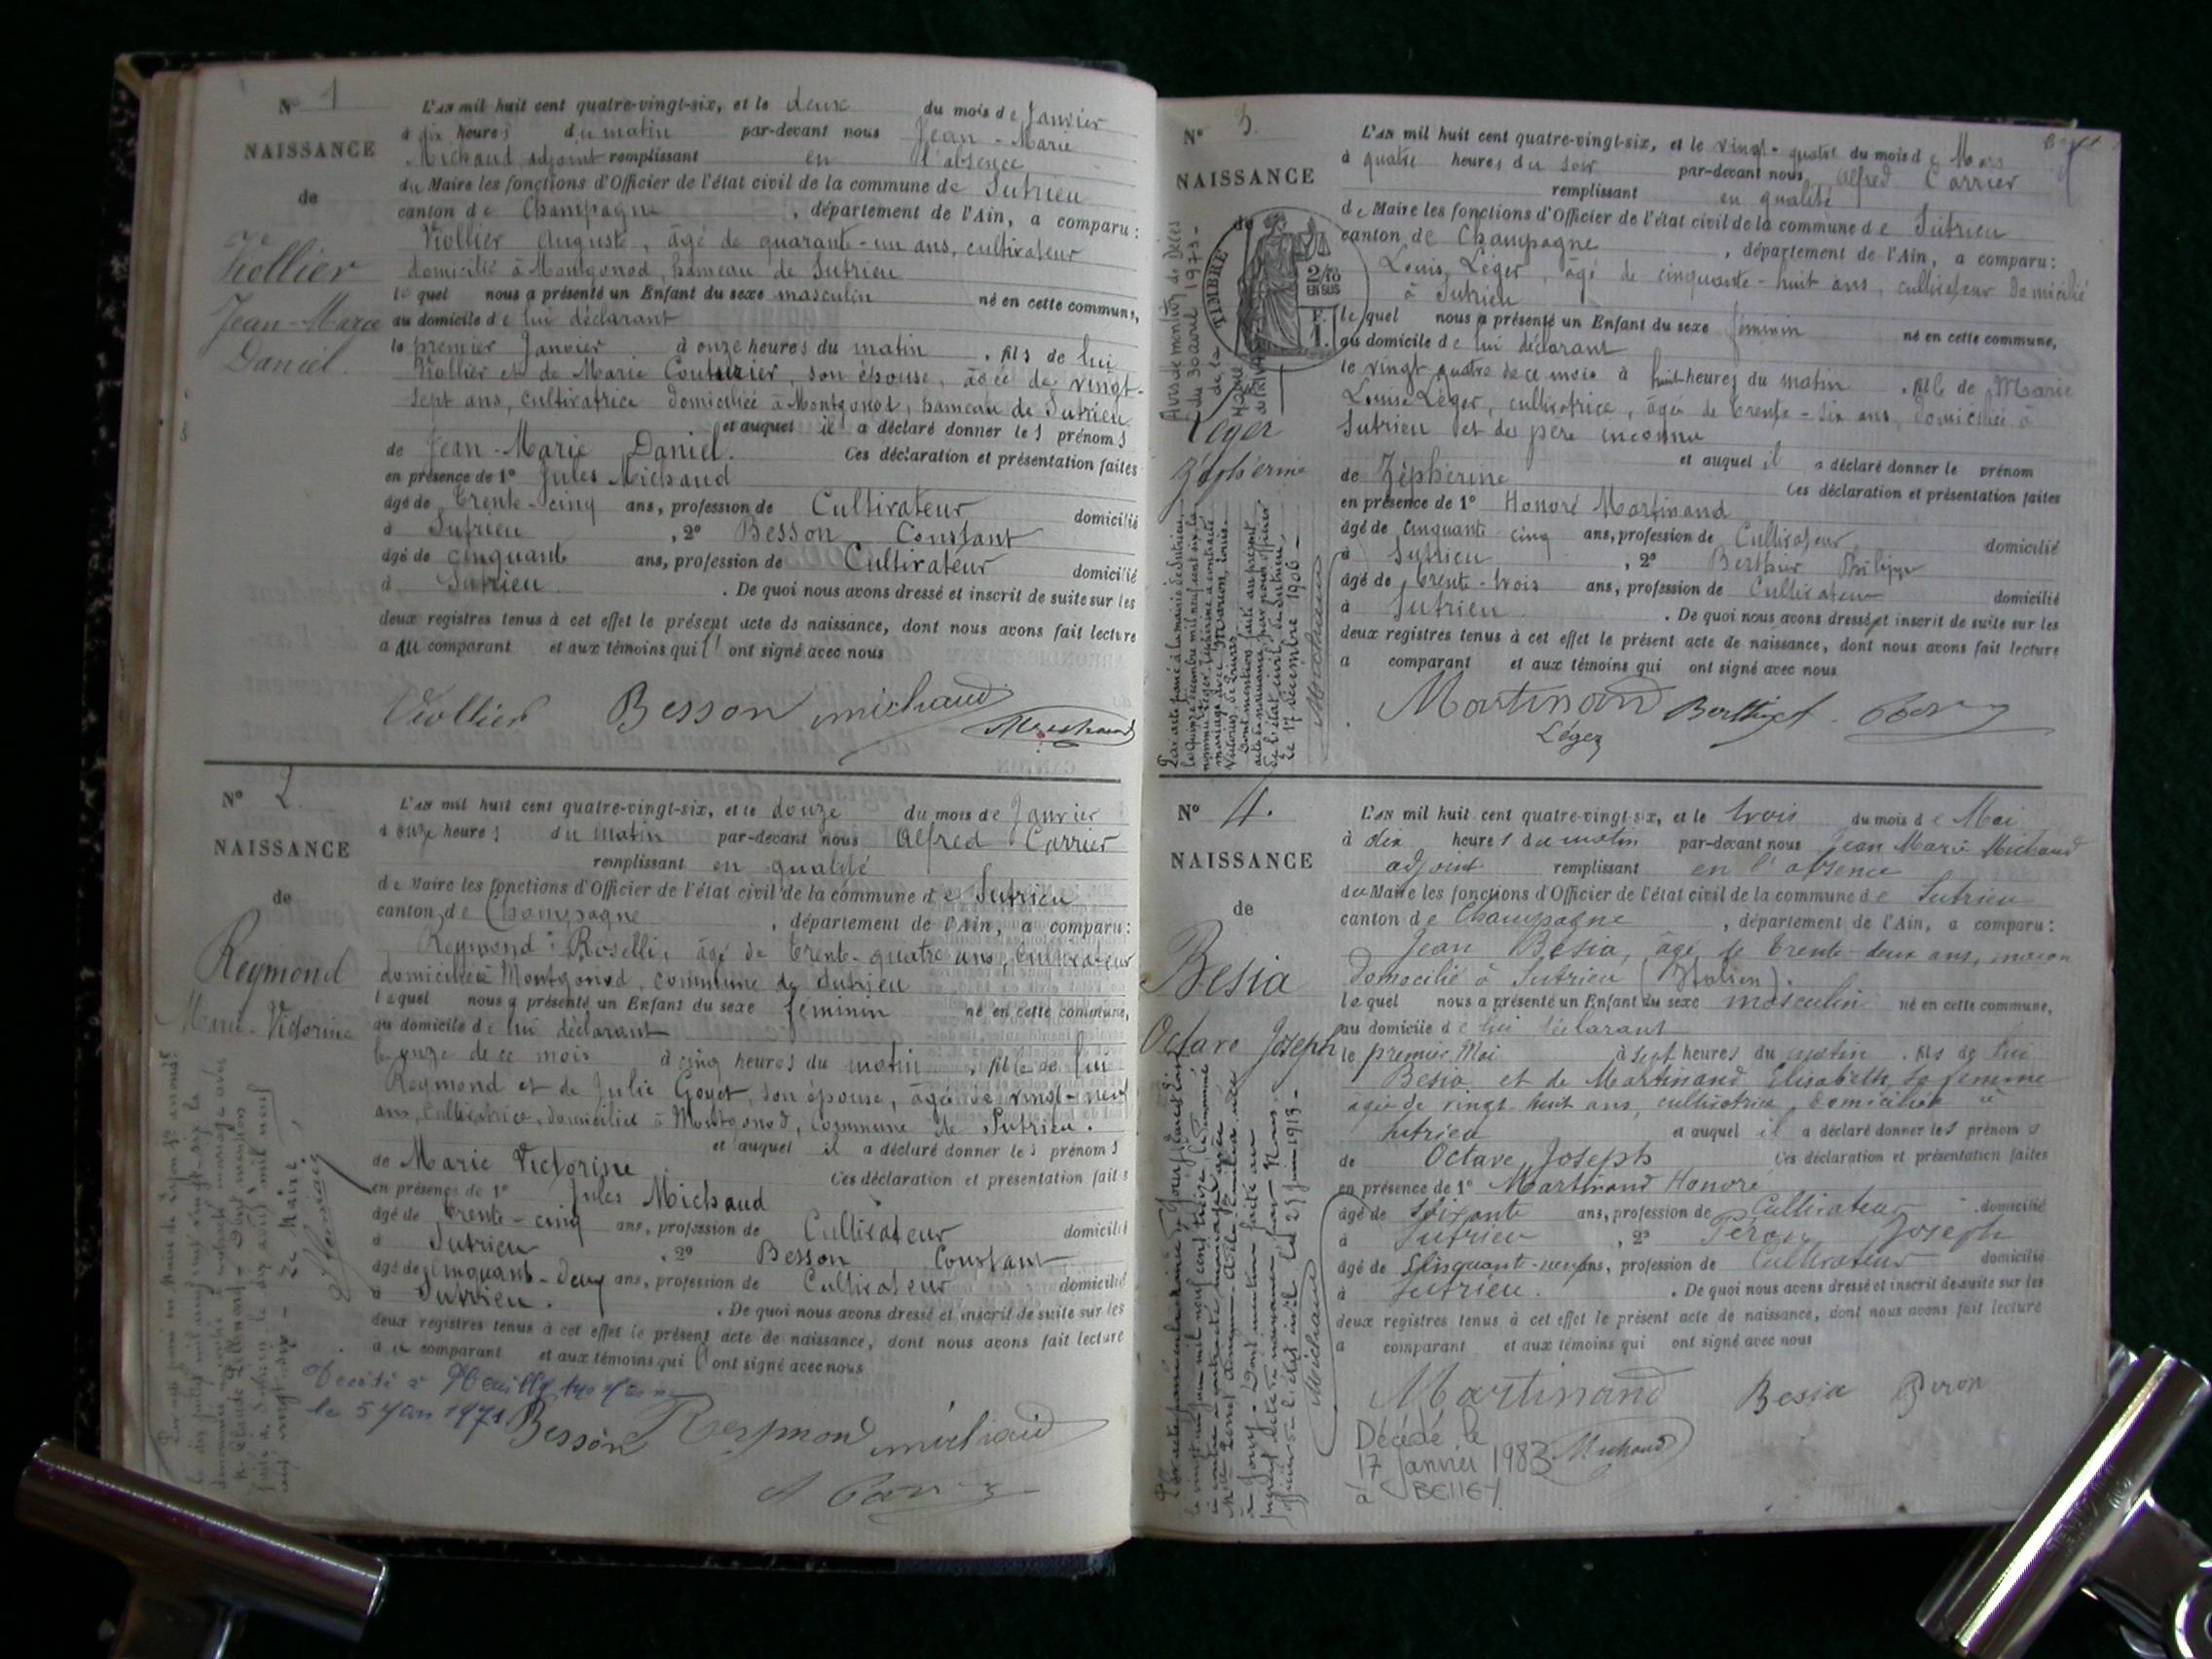 N° 1
NAISSANCE
de
Viollier
Jean-Marie
Daniel.
L'AN mil huit cent quatre-vingt-six, et le deux du mois de Janvier
à dix heures du matin par-devant nous Jean-Marie
Michaud, adjoint remplissant en l'absence
du Maire les fonctions d'Officier de l'état civil de la commune de Sutrieu
canton de Champagne, département de l'Ain, a comparu:
Viollier Auguste, âgé de quarante-un ans, cultivateur
domicilié à Montgonod, hameau de Sutrieu
lequel nous a présenté un Enfant du sexe masculin né en cette commune,
au domicile de lui déclarant
le premier Janvier à onze heures du matin, fils de lui
Viollier et de Marie Couturier, son épouse, âgée de vingt-
sept ans, cultivatrice domiciliée à Montgonod, hameau de Sutrieu
et auquel il a déclaré donner les prénoms
de Jean-Marie Daniel. Ces déclaration et présentation faites
en présence de 1° Jules Michaud
âgé de trente-cinq ans, profession de Cultivateur domicilié
à Sutrieu, 2° Besson Constant
âgé de cinquante ans, profession de Cultivateur domicilié
à Sutrieu. De quoi nous avons dressé et inscrit de suite sur les
deux registres tenus à cet effet le présent acte de naissance, dont nous avons fait lecture
a au comparant et aux témoins qui ont signé avec nous
Viollier Besson Michaud
Michaud
N° 2
NAISSANCE
de
Reymond
Marie-Victorine
L'AN mil huit cent quatre-vingt-six, et le douze du mois de Janvier
à onze heures du matin par-devant nous Alfred Carrier
remplissant en qualité
de Maire les fonctions d'Officier de l'état civil de la commune de Sutrieu
canton de Champagne, département de l'Ain, a comparu:
Reymond Roselli, âgé de trente-quatre ans, cultivateur
domicilié à Montgonod, commune de Sutrieu
lequel nous a présenté un Enfant du sexe féminin né en cette commune,
au domicile de lui déclarant
le onze de ce mois à cinq heures du matin, fille de lui
Reymond et de Julie Goyet, son épouse, âgée de vingt-neuf
ans, cultivatrice, domiciliée à Montgonod, commune de Sutrieu.
et auquel il a déclaré donner les prénoms
de Marie Victorine Ces déclaration et présentation faites
en présence de 1° Jules Michaud
âgé de trente-cinq ans, profession de Cultivateur domicilié
à Sutrieu, 2° Besson Constant
âgé de cinquante-deux ans, profession de Cultivateur domicilié
à Sutrieu. De quoi nous avons dressé et inscrit de suite sur les
deux registres tenus à cet effet le présent acte de naissance, dont nous avons fait lecture
a comparant et aux témoins qui ont signé avec nous
le 5 Jan 1971
Besson Reymond Michaud
N° 3.
NAISSANCE
de
TIMBRE
2/10
EN SUS
Léger
Zépherine
L'AN mil huit cent quatre-vingt-six, et le vingt-quatre du mois de Mars
à quatre heures du soir par-devant nous Alfred Carrier
remplissant en qualité
de Maire les fonctions d'Officier de l'état civil de la commune de Sutrieu
canton de Champagne, département de l'Ain, a comparu:
Louis Léger, âgé de cinquante-huit ans, cultivateur domicilié
à Sutrieu
lequel nous a présenté un Enfant du sexe féminin né en cette commune,
au domicile de lui déclarant
le vingt-quatre de ce mois à huit heures du matin, fille de Marie
Louise Léger, cultivatrice, âgée de trente-six ans, domiciliée à
Sutrieu et de père inconnu
et auquel il a déclaré donner le prénom
de Zépherine Ces déclaration et présentation faites
en présence de 1° Honoré Martinand
âgé de cinquante cinq ans, profession de Cultivateur domicilié
à Sutrieu, 2° Berthier Philippe
âgé de trente-trois ans, profession de Cultivateur domicilié
à Sutrieu. De quoi nous avons dressé et inscrit de suite sur les
deux registres tenus à cet effet le présent acte de naissance, dont nous avons fait lecture
a comparant et aux témoins qui ont signé avec nous
Martinand
Léger
le 17 décembre 1906
N° 4.
NAISSANCE
de
Besia
Octave Joseph
L'AN mil huit cent quatre-vingt-six, et le trois du mois de Mai
à dix heures du matin par-devant nous Jean Marie Michaud
adjoint remplissant en l'absence
du Maire les fonctions d'Officier de l'état civil de la commune de Sutrieu
canton de Champagne, département de l'Ain, a comparu:
Jean Besia, âgé de trente-deux ans, maçon
domicilié à Sutrieu (Italien).
lequel nous a présenté un Enfant du sexe masculin né en cette commune,
au domicile de lui déclarant
le premier Mai à sept heures du matin, fils de lui
Besia et de Martinand Elisabeth, sa femme
âgée de vingt-huit ans, cultivatrice, domiciliée à
Sutrieu et auquel il a déclaré donner les prénoms
de Octave Joseph Ces déclaration et présentation faites
en présence de 1° Martinand Honoré
âgé de soixante ans, profession de Cultivateur domicilié
à Sutrieu, 2° Péron Joseph
âgé de cinquante-neuf ans, profession de Cultivateur domicilié
à Sutrieu. De quoi nous avons dressé et inscrit de suite sur les
deux registres tenus à cet effet le présent acte de naissance, dont nous avons fait lecture
a comparant et aux témoins qui ont signé avec nous
Martinand Besia Péron
Michaud
Décédé le
17 Janvier 1983
à BELLEY